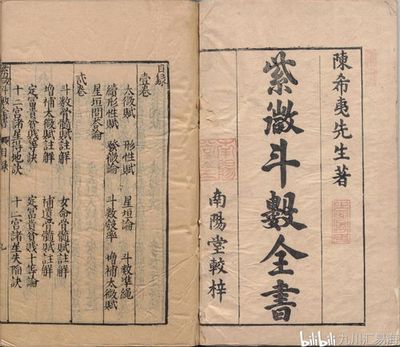 陳希夷先生著
紫微斗數全書
南陽堂較梓
目錄
壹卷
太微賦 形性賦 星垣論 斗數準繩
續形性賦 發微論 斗數彀率 增補太微賦
星垣問答論
貳卷
斗數骨髓賦註解 女命骨髓賦註解
增補太微賦註解 補遺骨髓賦註解
定富貴貧賤等訣 定富貴貧賤十等論
十二宮諸星得地訣 十二宮諸星失陷訣
目錄
bilibili 九川汇易